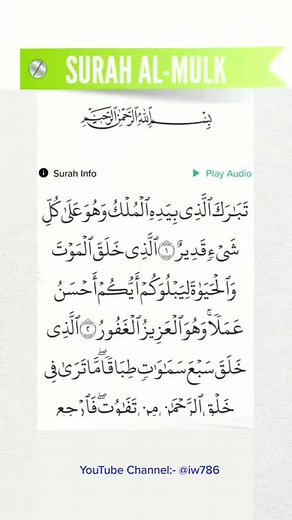 SURAH AL-MULK
بِسْمِ اللَّهِ الرَّحْمَٰنِ الرَّحِيمِ
Surah Info
Play Audio
تَبَارَكَ الَّذِي بِيَدِهِ الْمُلْكُ وَهُوَ عَلَىٰ كُلِّ
شَيْءٍ قَدِيرٌ ۝١ الَّذِي خَلَقَ الْمَوْتَ
وَالْحَيَاةَ لِيَبْلُوَكُمْ أَيُّكُمْ أَحْسَنُ
عَمَلًا ۚ وَهُوَ الْعَزِيزُ الْغَفُورُ ۝٢ الَّذِي
خَلَقَ سَبْعَ سَمَاوَاتٍ طِبَاقًا ۖ مَّا تَرَىٰ فِي
خَلْقِ الرَّحْمَٰنِ مِن تَفَاوُتٍ ۖ فَارْجِعِ
YouTube Channel:- @iw786